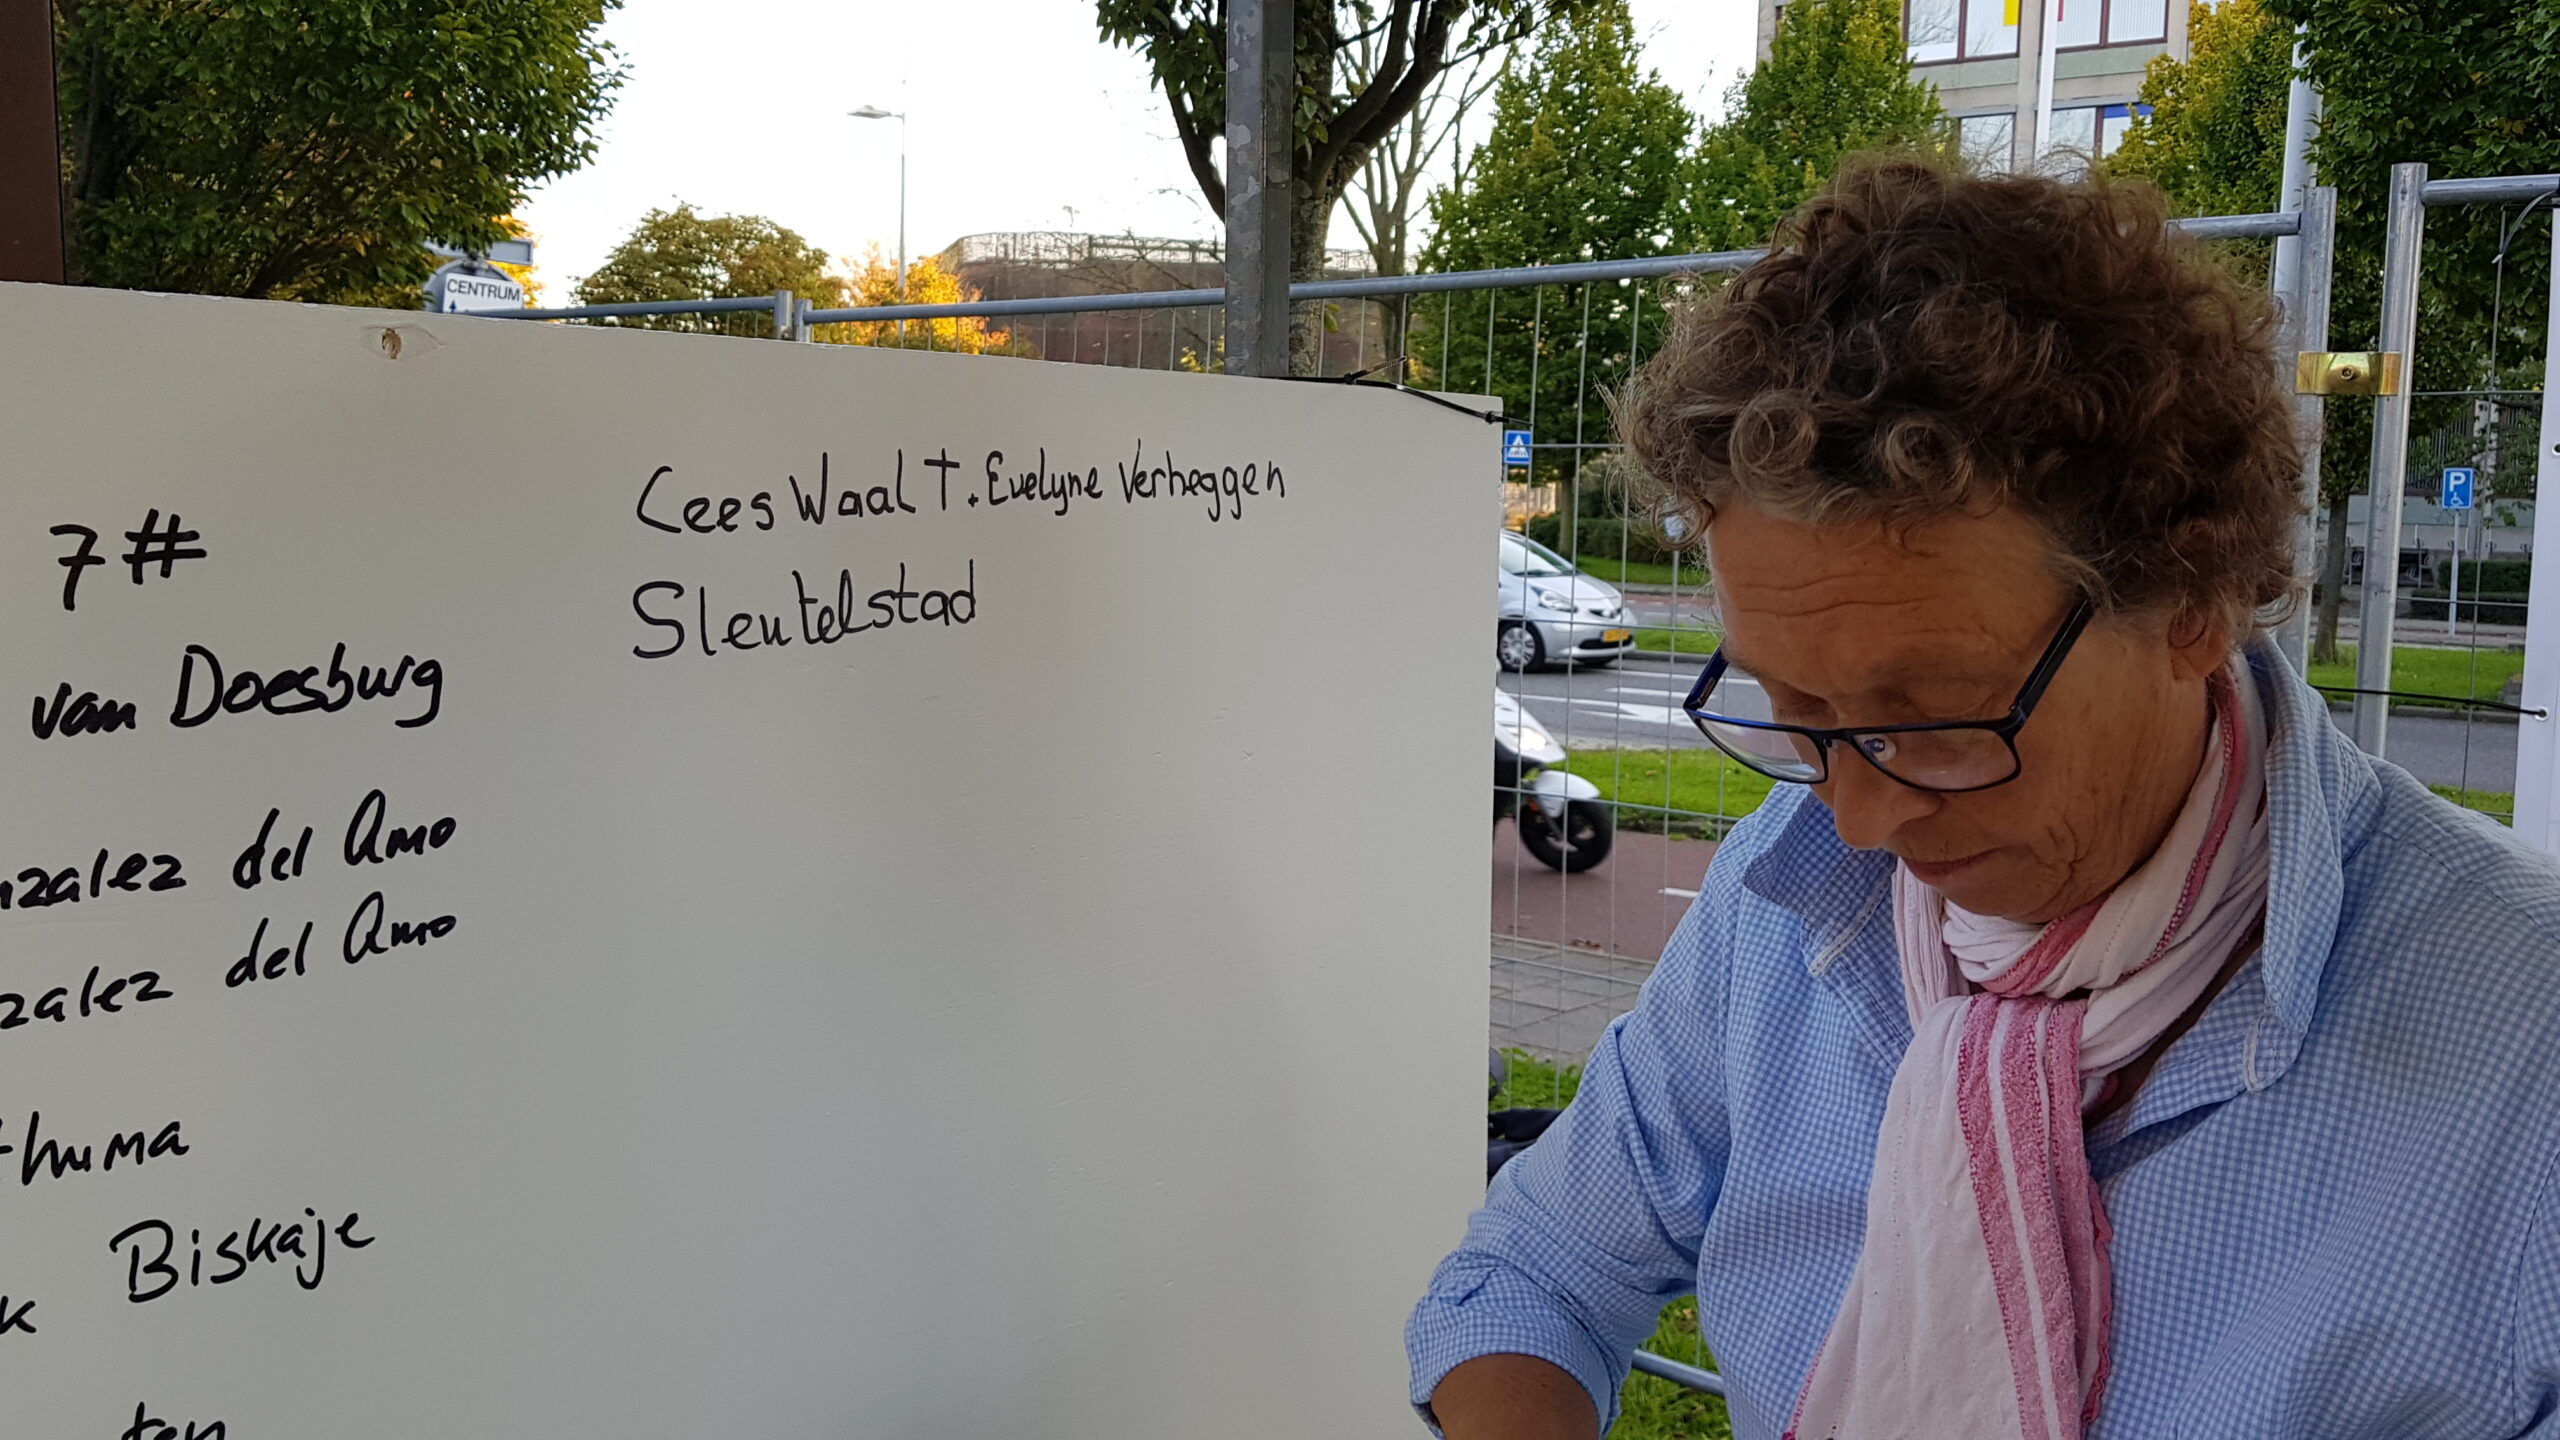 CENTRUM
7#
van Doesburg
del Amo
del Amo
Biskaje
ten
Cees Waal †. Evelyne Verheggen
Sleutelstad
P